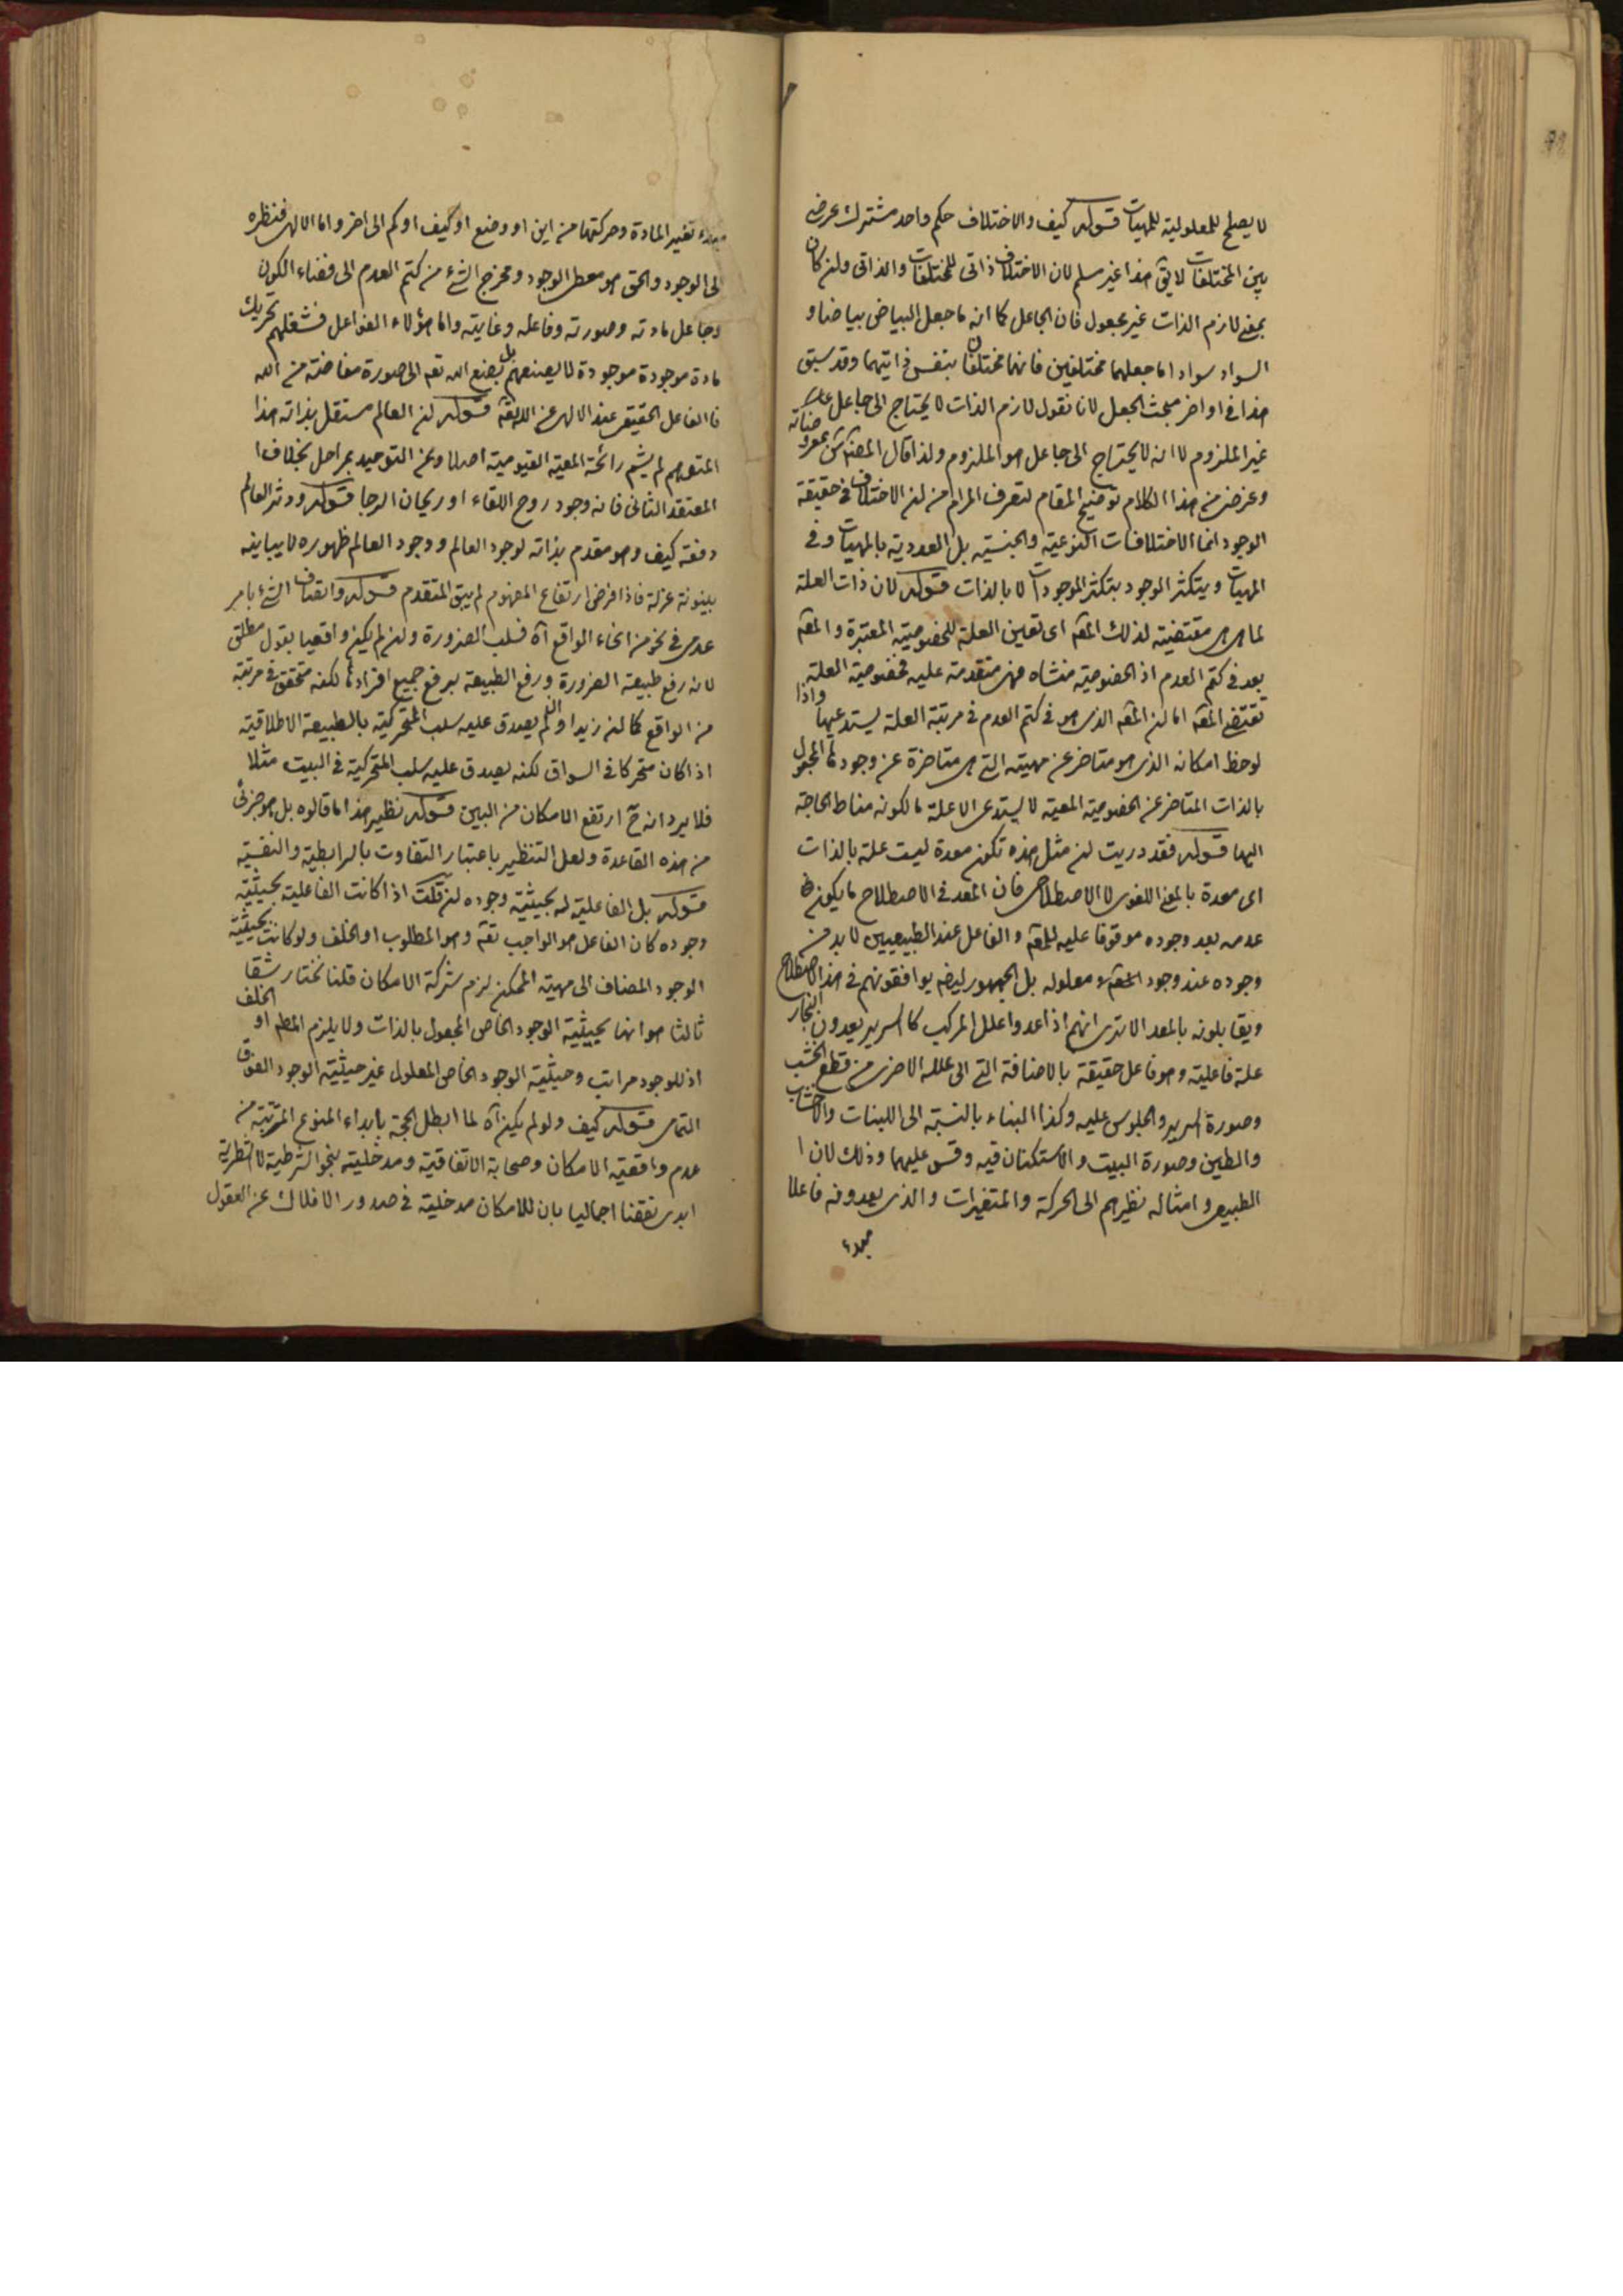 لا يصلح للمعلولية للمهيات قوله كيف والاختلاف حكم واحد مشترك عرضى
بين المختلفات لا يق هذا غير مسلم لان الاختلاف ذاتى للمختلفات والذاتى ولن كان
بمعنى لازم الذات غير مجعول فان الجاعل كما انه ما جعل البياض بياضا و
السواد سوادا ما جعلهما مختلفين فانهما مختلفان بنفس ذاتيهما وقد سبق
هذا فى اواخر مبحث الجعل لانا نقول لازم الذات لا يحتاج الى جاعل
غير الملزوم لا انه لا يحتاج الى جاعل هو الملزوم ولذا قال المصنف
وغرضى من هذا الكلام توضيح المقام لتعرف المرام من لن الاختلاف فى حقيقة
الوجود انما الاختلافات النوعية والجنسية بل العددية بالمهيات وفى
المهيات ويتكثر الوجود بتكثر الموجودات لا بالذات قوله لان ذات العلة
لما هى هى مقتضية لذلك المعه اى تعين العلة للخصوصية المعتبرة و المعه
بعد فى كتم العدم اذ الخصوصية منشاه فهى متقدمة عليه فخصوصية العلة
تقتضى المعه اما لن المعه الذى هو فى كتم العدم فى مرتبة العلة يستدعيها واذا
لوحظ امكانه الذى هو متاخر عن مهيته التى هى متاخرة عن وجودها المجعول
بالذات المتاخر عن الخصوصية المعية لا يستدعى الا علة ما لكونه مناط الحاجة
اليها قوله فقد دريت لن مثل هذه تكون معدة ليست علة بالذات
اى معدة بالمعنى اللغوى لا الاصطلاحى فان المعد فى الاصطلاح ما يكون
عدمه بعد وجوده موقوفا عليه للمعه و الفاعل عند الطبيعيين لا بد من
وجوده عند وجود المعه لا معلوله بل الجمهور ايضه يوافقونهم فى هذا الاصطلاح
ويقابلونه بالمعد الا ترى انهم اذا عدوا علل المركب كالسرير يعدون النجار
علة فاعلية وهو فاعل حقيقة بالاضافة التى الى علله الاخرى من قطع الخشب
وصورة السرير والجلوس عليه وكذا البناء بالنسبة الى اللبنات والاخشاب
والطين وصورة البيت والاستكنان فيه وقس عليهما وذلك لان ا
لطبيعى وامثاله نظيرهم الى الحركة والمتغيرات والذى يعدونه فاعلا
مبدء
مبدء تغير المادة وحركتها من اين او وضع او كيف او كم الى اخر واما الالهى فنظره
الى الوجود والحق هو معطى الوجود ومخرج الشئ من كتم العدم الى فضاء الكون
وجاعل مادته وصورته وفاعله وغايته واما هؤلاء الفواعل فشغلهم تحريك
مادة موجودة موجودة لا بصنعهم بل بصنع الله تعه الى صورة مفاضة من الله
فالفاعل الحقيقى عند الالهى قوله لن العالم مستقل بذاته هذا
المتوهم لم يشم رائحة المعية القيومية اصلا وعن التوحيد بمراحل بخلاف ا
لمعتقد الثانى فانه وجود روح اللقاء او ريحان الرجا قوله ودثر العالم
دفعة كيف وهو مقدم بذاته لوجود العالم ووجود العالم ظهوره لا يباينه
بينونة عزلة فاذا فرض ارتفاع المفهوم لم يبق المتقدم قوله واتصاف الشئ بامر
عدمى فى نحو من انحاء الواقع آه فسلب الضرورة ولن لم يكن واقعيا بقول مطلق
لانه رفع طبيعة الضرورة ورفع الطبيعة برفع جميع افرادها لكنه متحقق فى مرتبة
من الواقع كما لن زيدا ولن لم يصدق عليه سلب المتحركية بالطبيعة الاطلاقية
اذا كان متحركا فى السواق لكنه يصدق عليه سلب المتحركية فى البيت مثلا
فلا يرد انه ح ارتفع الامكان من البين قوله نظير هذا ما قالوه بل هو جزئى
من هذه القاعدة ولعل التنظير باعتبار التفاوت بالرابطية والنفسية
قوله بل الفاعلية له بحيثية وجوده لن قلت اذا كانت الفاعلية بحيثية
وجوده كان الفاعل هو الواجب تعه وهو المطلوب او الخلف ولو كانت بحيثية
الوجود المضاف الى مهية الممكن لزم شركة الامكان قلنا نختار شقا
ثالثا هو انها بحيثية الوجود الخاص المجعول بالذات ولا يلزم المطه او الخلف
اذ للوجود مراتب وحيثية الوجود الخاص المعلول غير حيثية الوجود الفوق
التمامى قوله كيف ولو لم يكن آه لما ابطل الحجة بابداء المنوع المترتبة من
عدم واقعية الامكان وصحابة الاتفاقية ومدخلية بنحو الشرطية لا الشطرية
ابدى نقضا اجماليا بان للامكان مدخلية فى صدور الافلاك عن العقول